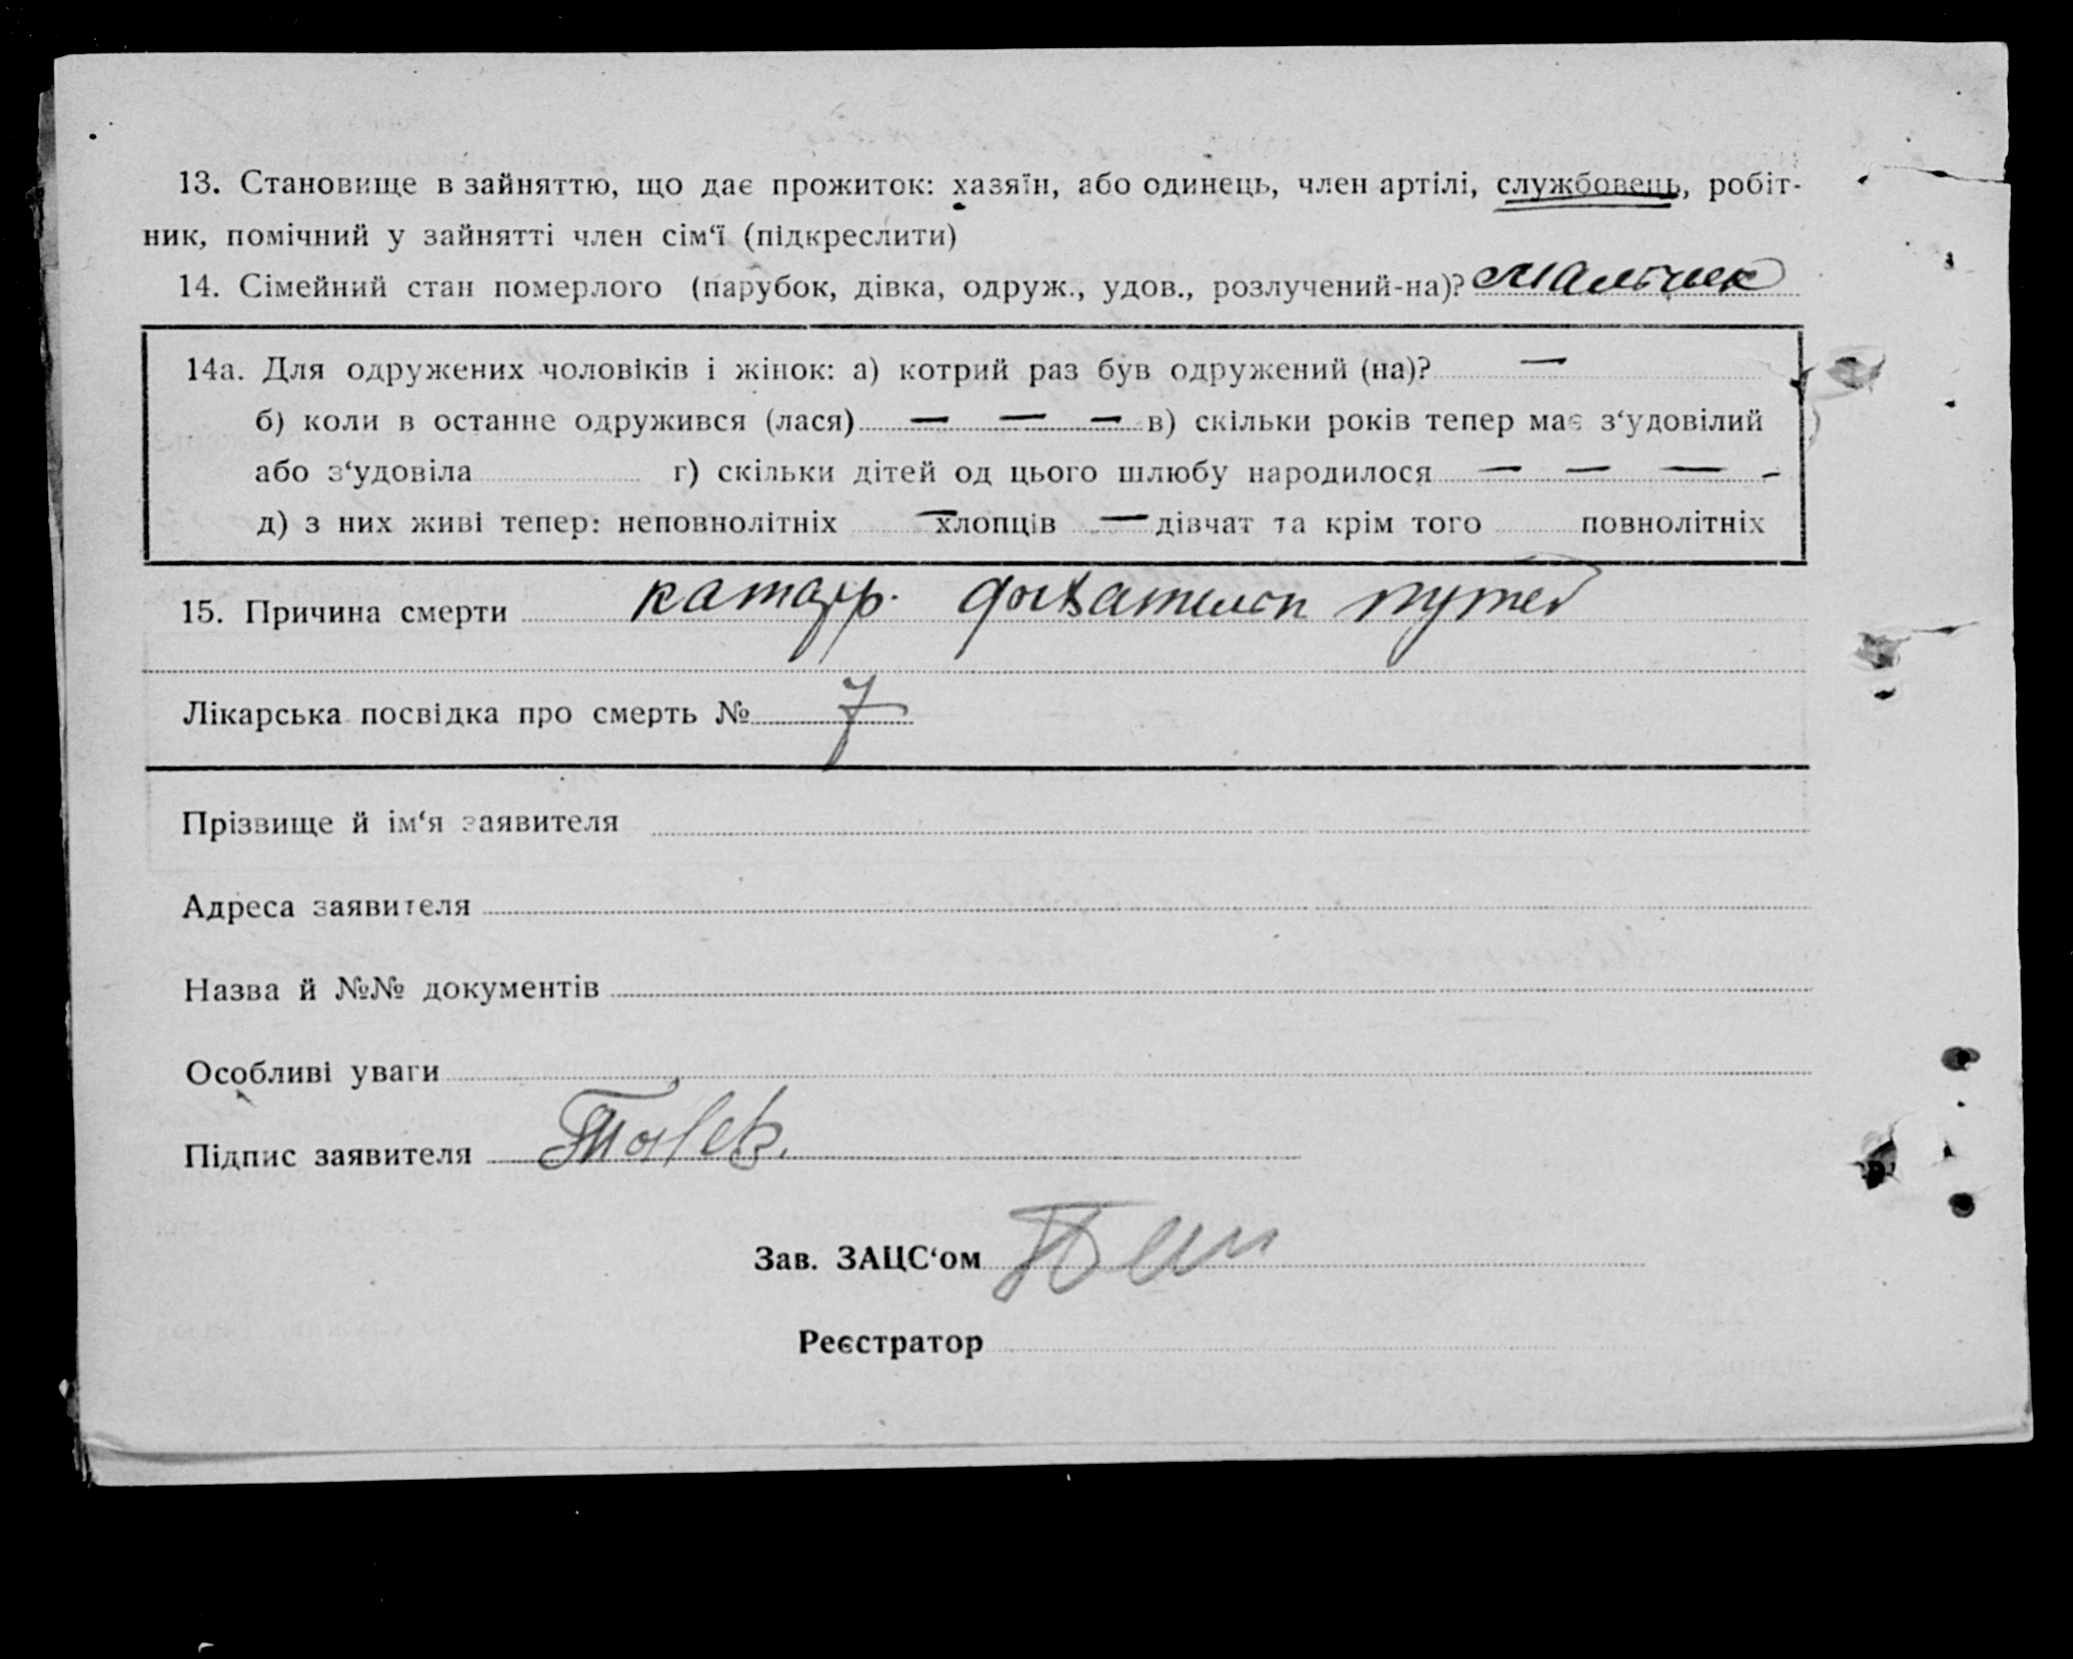 13. Становище в зайняттю, що дає прожиток: хазяїн, або одинець, член артілі, службовець, робіт-
ник, помічний у зайнятті член сім‘ї (підкреслити)
14. Сімейний стан померлого (парубок, дівка, одруж., удов., розлучений-на)? мальчик
14а. Для одружених чоловіків і жінок: а) котрий раз був одружений (на)? —
б) коли в останне одружився (лася) — — — в) скільки років тепер має з‘удовілий
або з‘удовіла г) скільки дітей од цього шлюбу народилося — — — -
д) з них живі тепер: неповнолітніх — хлопців — дівчат та крім того повнолітніх
15. Причина смерти катарр. дыхательн путей
Лікарська посвідка про смерть № 7
Прізвище й ім‘я заявителя
Адреса заявителя
Назва й №№ документів
Особливі уваги
Підпис заявителя
Зав. ЗАЦС‘ом
Реєстратор